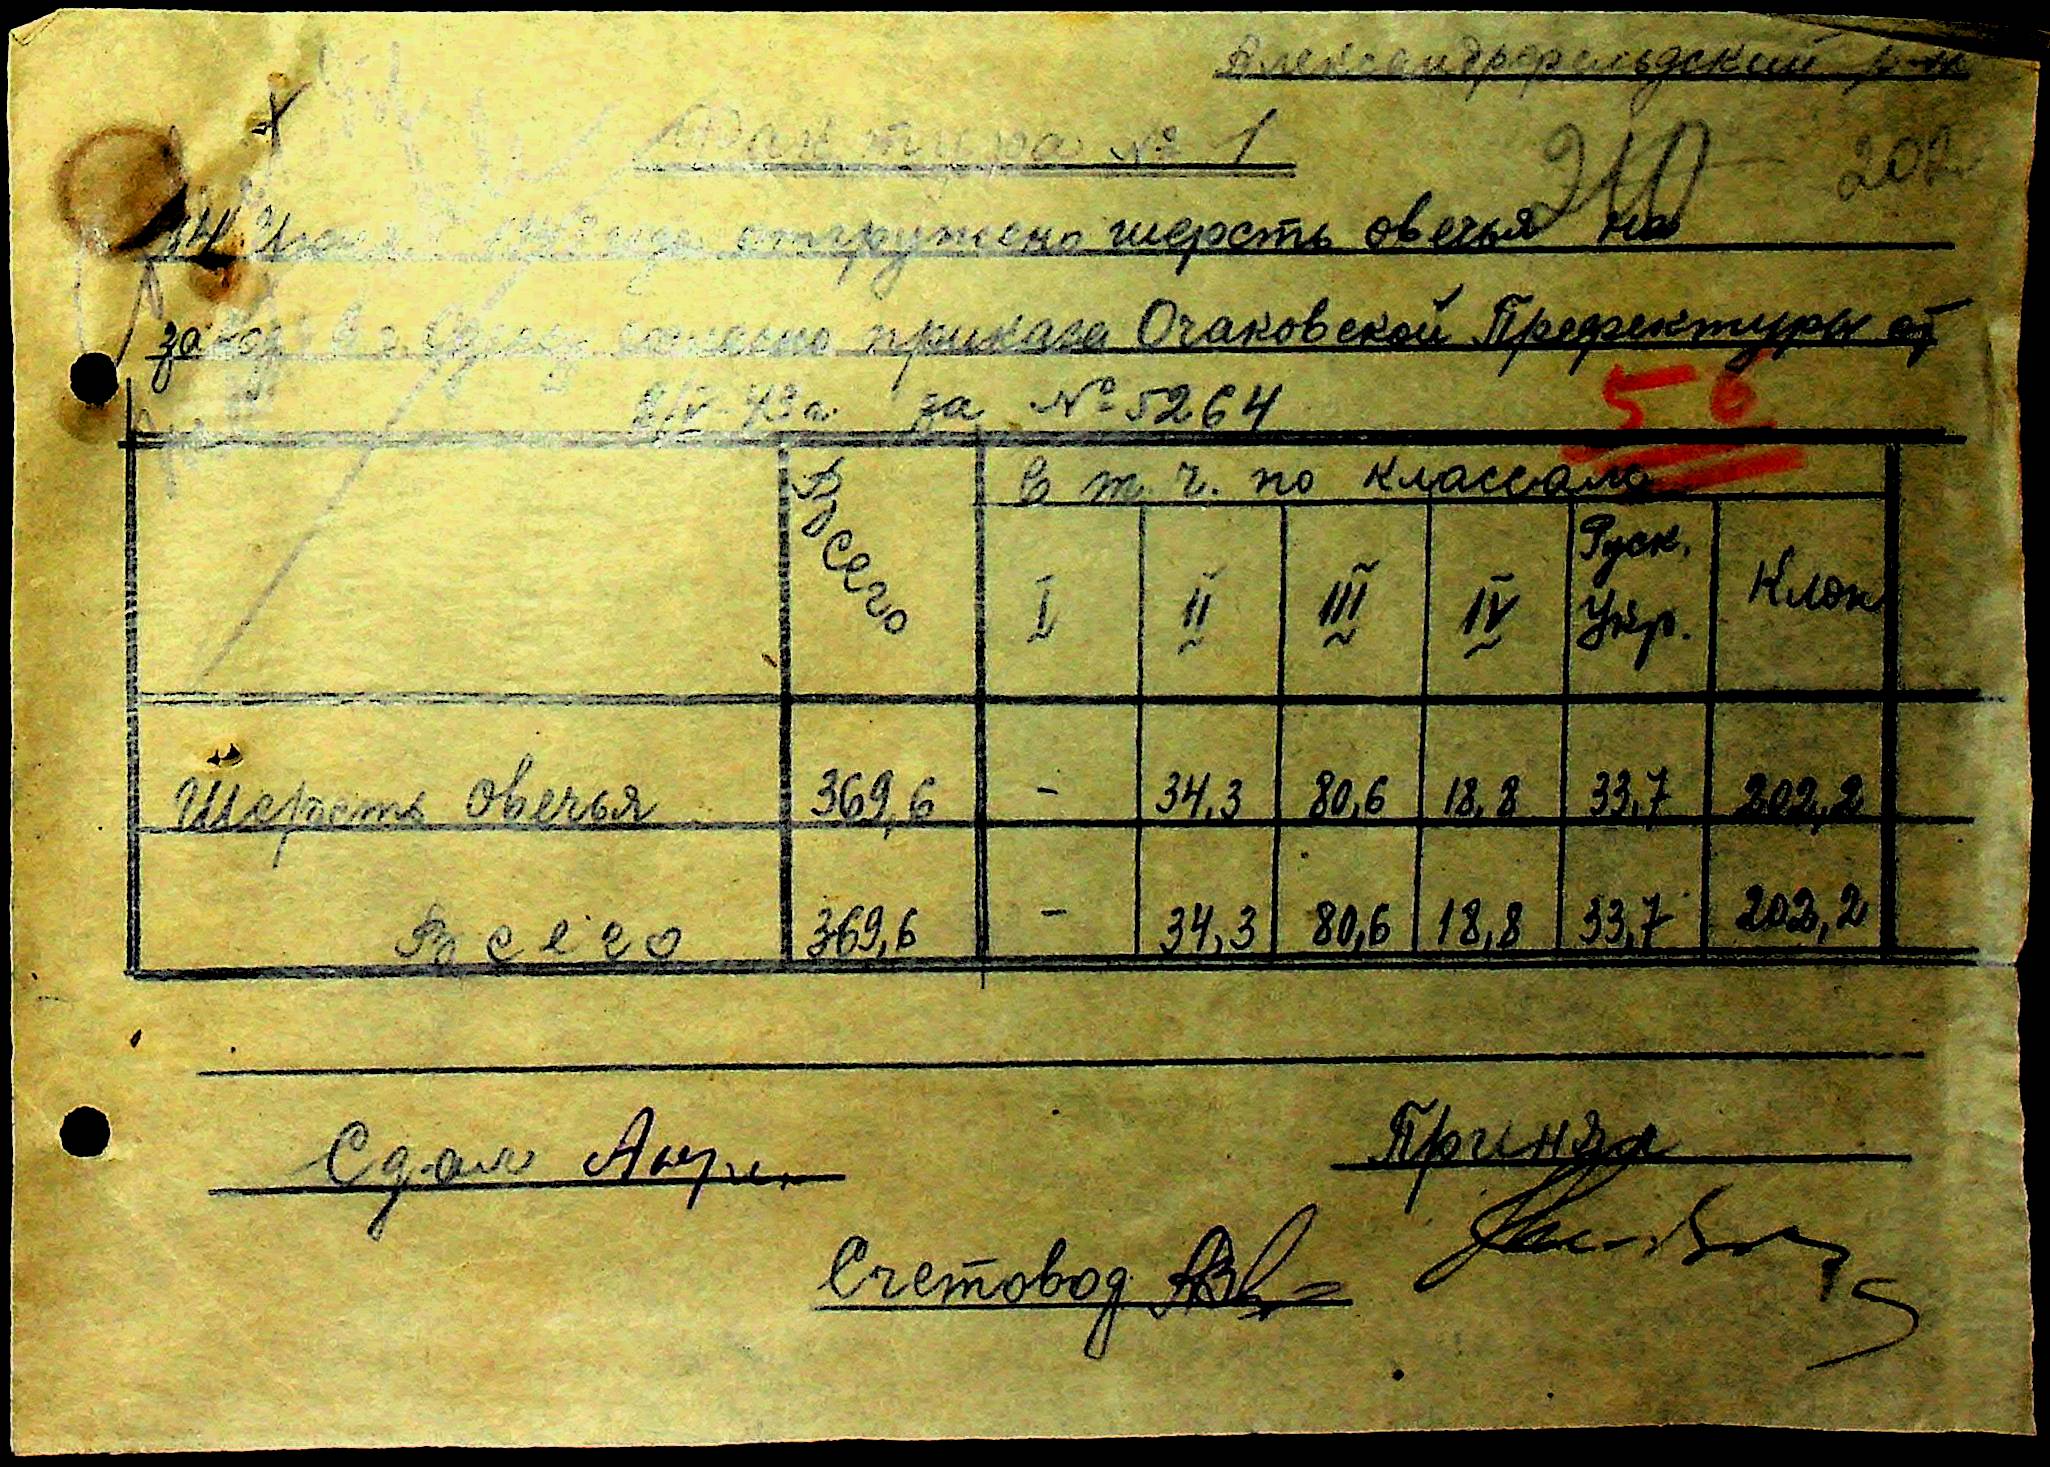 Александрфельдский р-н
Фактура № 1
210 202
14 Июня 1943 года отгружено шерсть овечья на
завод в г. Одессу согласно приказа Очаковской Префектуры от
2/IV-43 г. за № 5264
56
Всего
В т. ч. по классам
I II III IV Руск. Укр. Клок
Шерсть овечья 369,6 - 34,3 80,6 18,8 33,7 202,2
Всего 369,6 - 34,3 80,6 18,8 33,7 202,2
Сдал
Принял
Счетовод